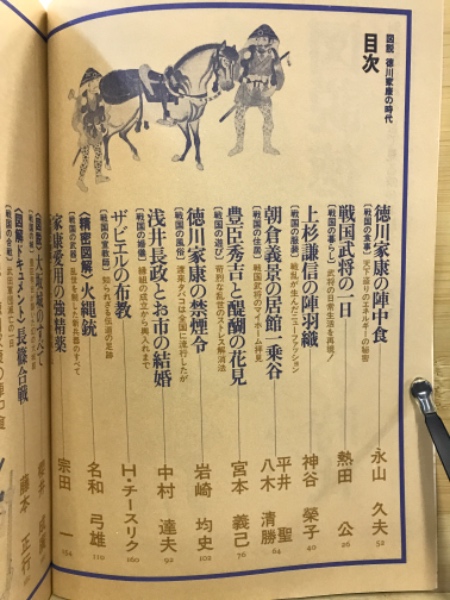 図説 徳川家康の時代
目次
徳川家康の陣中食
〔戦国の食事〕天下盗りのエネルギーの秘密
永山 久夫 52
戦国武将の一日
〔戦国の暮らし〕武将の日常生活を再現!
熱田 公 26
上杉謙信の陣羽織
〔戦国の服装〕戦乱が生んだニューファッション
神谷 榮子 40
朝倉義景の居館一乗谷
〔戦国の住居〕戦国武将のマイホーム拝見
平井 聖
八木 清勝 64
豊臣秀吉と醍醐の花見
〔戦国の遊び〕苛烈な乱世のストレス解消法
宮本 義己 76
徳川家康の禁煙令
〔戦国の風俗〕渡来タバコは全国に流行したが
岩崎 均史 102
浅井長政とお市の結婚
〔戦国の婚儀〕縁組の成立から輿入れまで
中村 達夫 92
ザビエルの布教
〔戦国の宣教師〕知られざる伝道の足跡
H・チースリク 160
〈精密図解〉火縄銃
〔戦国の武器〕乱世を制した新兵器のすべて
名和 弓雄 110
家康愛用の強精薬
宗田 一 154
大坂城のすべて
〈図解ドキュメント〉長篠合戦
〔戦国の合戦〕武田軍団潰滅の一日
藤本 正行